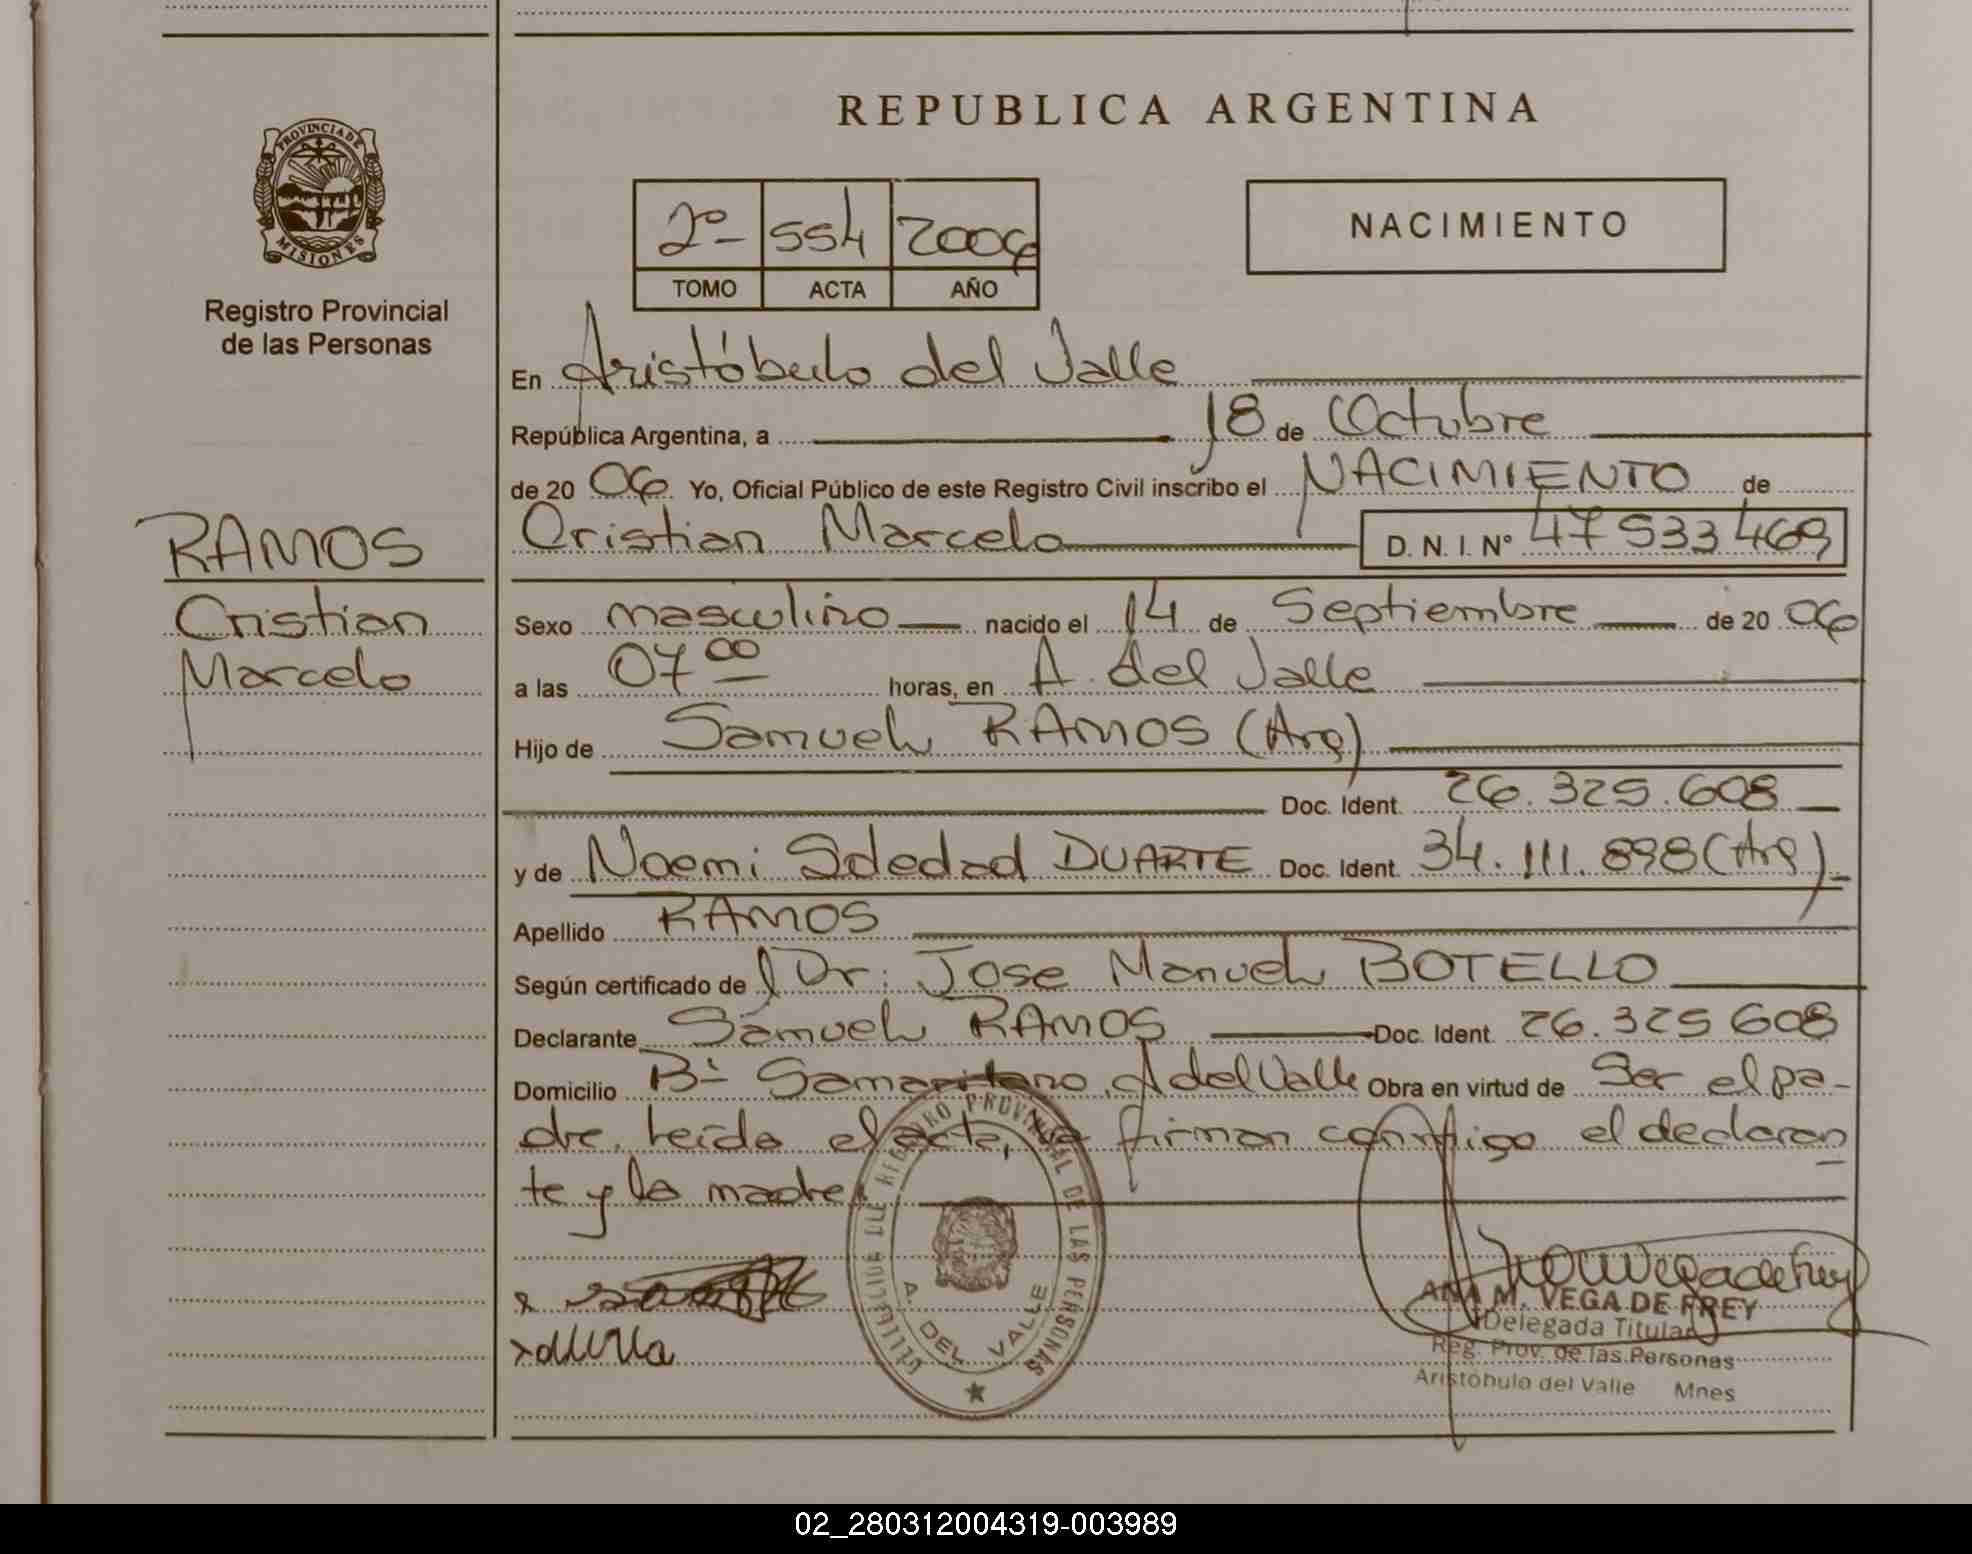 REPUBLICA ARGENTINA
PROVINCIA DE
MISIONES
Registro Provincial
de las Personas
2º 554 2006
TOMO ACTA AÑO
NACIMIENTO
RAMOS
Cristian
Marcelo
En Aristóbulo del Valle
República Argentina, a 18 de Octubre
de 20 06 Yo, Oficial Público de este Registro Civil inscribo el NACIMIENTO de
Cristian Marcelo D. N. I. Nº 47533469
Sexo masculino nacido el 14 de Septiembre de 20 06
a las 07 00 horas, en A. del Valle
Hijo de Samuel RAMOS (Arg)
Doc. Ident. 26.325.608
y de Noemi Soledad DUARTE Doc. Ident. 34.111.898 (Arg)
Apellido RAMOS
Según certificado de Dr. Jose Manuel BOTELLO
Declarante Samuel RAMOS Doc. Ident. 26.325 608
Domicilio Bº Samaritano, A del Valle Obra en virtud de Ser el pa-
dre. Leída el acta, firman conmigo el declaran
te y la madre.
REGISTRO PROVINCIAL DE LAS PERSONAS
A. DEL VALLE
ANA M. VEGA DE FREY
Delegada Titular
Reg. Prov. de las Personas
Aristóbulo del Valle Mnes
02_280312004319-003989